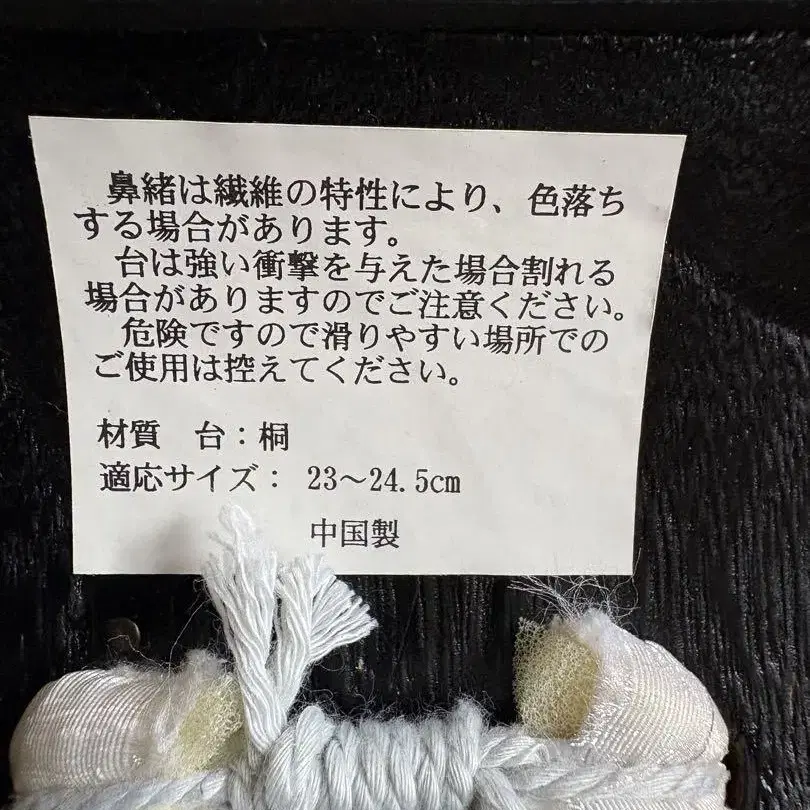 鼻緒は繊維の特性により、色落ち
する場合があります。
台は強い衝撃を与えた場合割れる
場合がありますのでご注意ください。
危険ですので滑りやすい場所での
ご使用は控えてください。
材質　台：桐
適応サイズ： 23～24.5cm
中国製